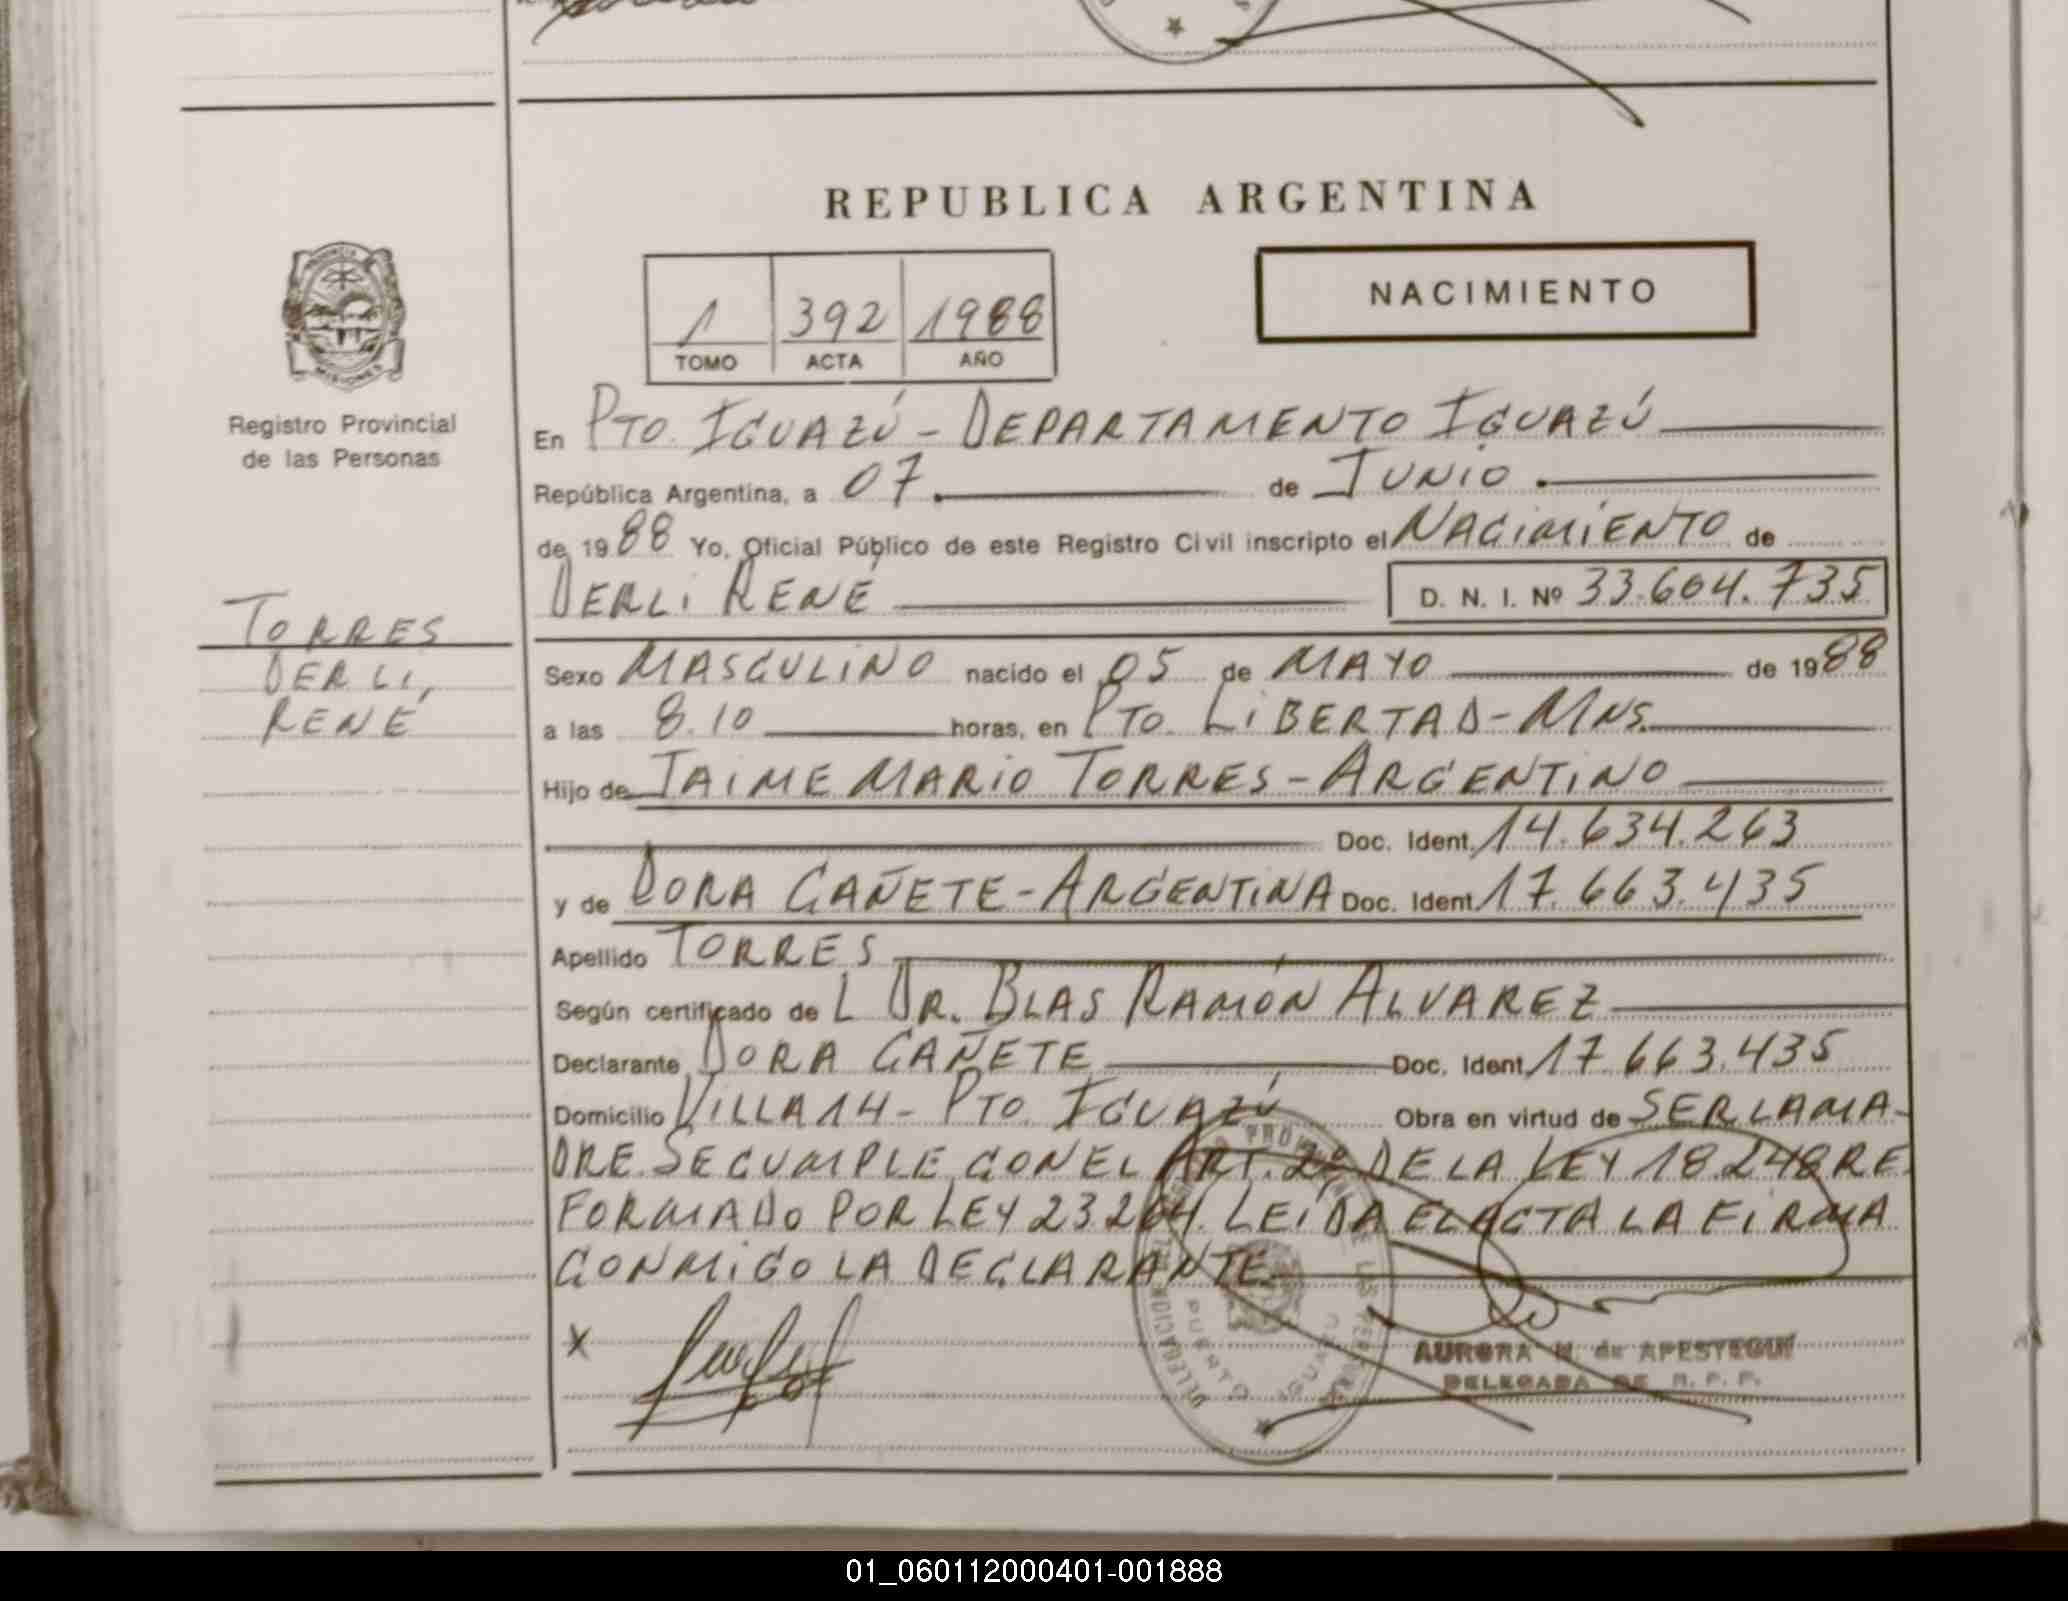 REPUBLICA ARGENTINA
NACIMIENTO
1 392 1988
TOMO ACTA AÑO
PROVINCIA DE
MISIONES
Registro Provincial
de las Personas
TORRES
DERLI,
RENÉ
En PTO. IGUAZÚ - DEPARTAMENTO IGUAZÚ
República Argentina, a 07 de JUNIO
de 1988 Yo, Oficial Público de este Registro Civil inscripto el NACIMIENTO de
DERLI RENÉ D. N. I. Nº 33.604.735
Sexo MASCULINO nacido el 05 de MAYO de 1988
a las 8.10 horas, en PTO. LIBERTAD - MNS.
Hijo de JAIME MARIO TORRES - ARGENTINO
Doc. Ident. 14.634.263
y de DORA CAÑETE - ARGENTINA Doc. Ident. 17.663.435
Apellido TORRES
Según certificado de L DR. BLAS RAMÓN ALVAREZ
Declarante DORA CAÑETE Doc. Ident. 17.663.435
Domicilio VILLA 14 - PTO. IGUAZÚ Obra en virtud de SER LA MA-
DRE. SE CUMPLE CON EL ART. 2º DE LA LEY 18.248 RE
FORMADO POR LEY 23.264. LEIDA EL ACTA LA FIRMA
CONMIGO LA DECLARANTE
X
PUERTO IGUAZU
AURORA N. de APESTEGUI
DELEGADA DE R. P. P.
01_060112000401-001888